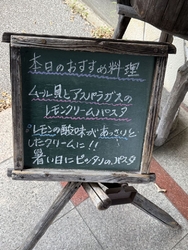 本日のおすすめ料理
ムール貝とアスパラガスの
レモンクリームパスタ
レモンの酸味があっさりと
したクリームに!!
暑い日にピッタリのパスタ